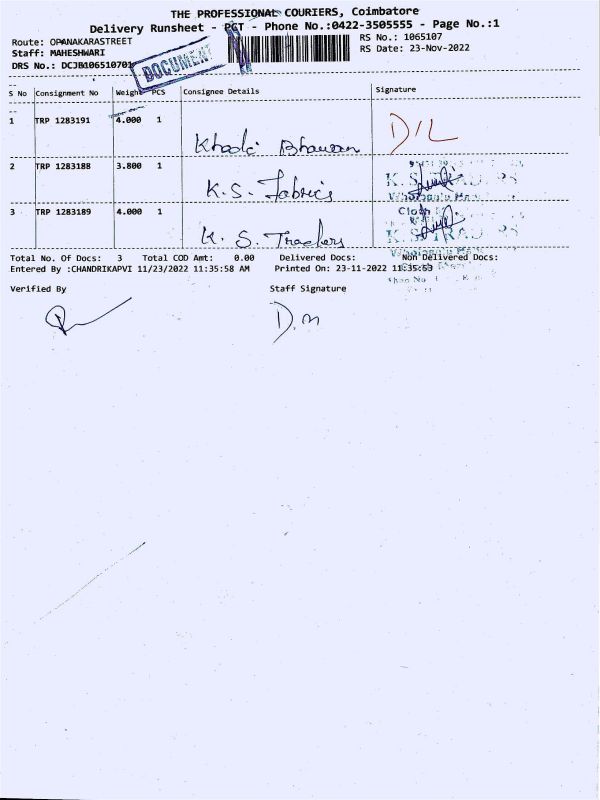 THE PROFESSIONAL COURIERS, Coimbatore
Delivery Runsheet - PGT - Phone No.:0422-3505555 - Page No.:1
Route: OPANAKARASTREET
RS No.: 1065107
Staff: MAHESHWARI
RS Date: 23-Nov-2022
DRS No.: DCJB106510701
DOCUMENT
S No Consignment No Weight PCS Consignee Details Signature
1 TRP 1283191 4.000 1 Khadi Bhawan D/L
2 TRP 1283188 3.800 1 K.S. Fabrics
3 TRP 1283189 4.000 1 K. S. Traders
Total No. Of Docs: 3 Total COD Amt: 0.00 Delivered Docs: Non Delivered Docs:
Entered By :CHANDRIKAPVI 11/23/2022 11:35:58 AM Printed On: 23-11-2022 11:35:53
Verified By Staff Signature
D.M